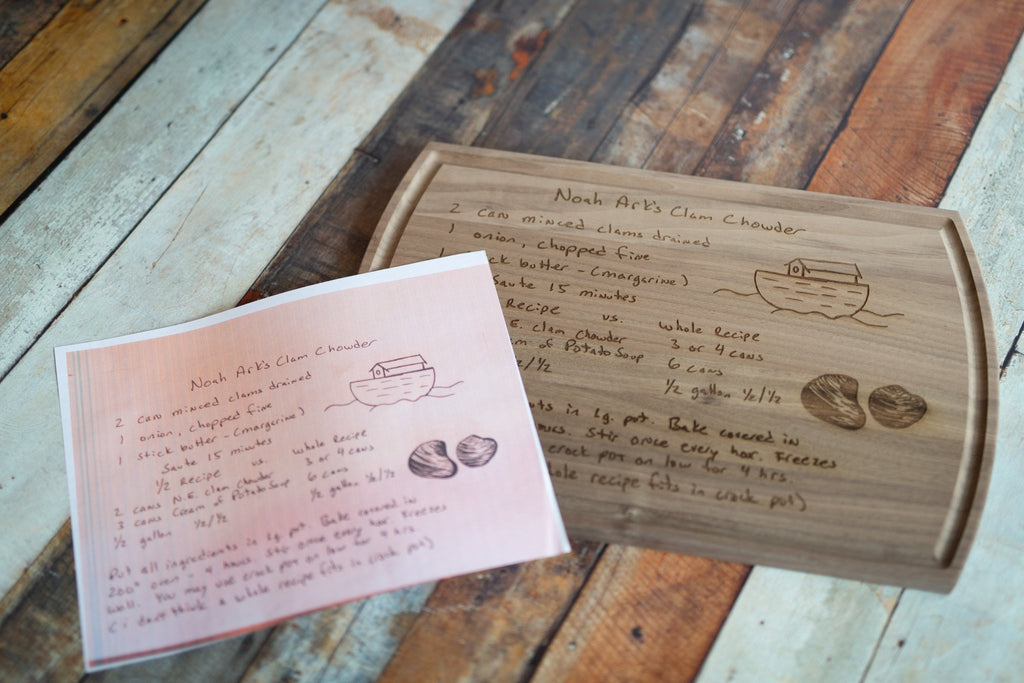 Noah Ark's Clam Chowder
2 cans minced clams drained
1 onion, chopped fine
1 stick butter - (margarine)
Saute 15 minutes
1/2 Recipe vs. whole Recipe
2 cans N.E. Clam Chowder 3 or 4 cans
3 cans Cream of Potato Soup 6 cans
1/2 gallon 1/2/1/2 1/2 gallon 1/2/1/2
Put all ingredients in lg. pot. Bake covered in
200° oven - 4 hours. Stir once every hour. Freezes
well. You may use crock pot on low for 4 hrs.
(i don't think a whole recipe fits in crock pot)
Noah Ark's Clam Chowder
2 cans minced clams drained
1 onion, chopped fine
stick butter - (margarine)
Saute 15 minutes
Recipe vs. whole Recipe
E. Clam Chowder 3 or 4 cans
m of Potato Soup 6 cans
/1/2 1/2 gallon 1/2/1/2
ts in lg. pot. Bake covered in
ours. Stir once every hour. Freezes
crock pot on low for 4 hrs.
ole recipe fits in crock pot)